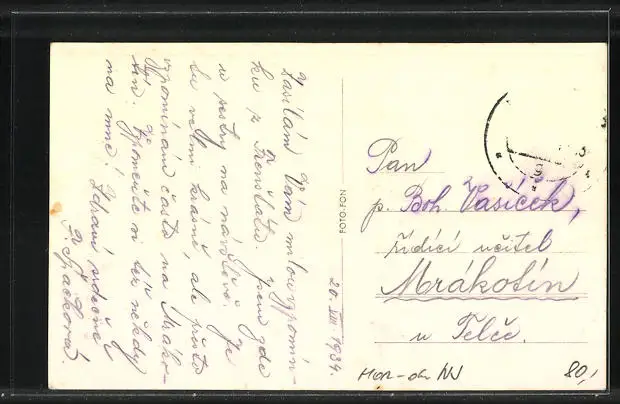 Zasílám Vám milou vzpomín-
ku z Frenštátu, jsem zde
u sestry na návštěvě. Je
tu velmi krásně, ale přeto
vzpomínám často na Mrákо-
tín. Vzpomeňte si též někdy
na mne! Zdraví srdečně
Špačková.
20. VIII 1934.
FOTO-FON
Pan
p. Boh. Vašíček,
řídící učitel
Mrákotín
u Telče.
80,-